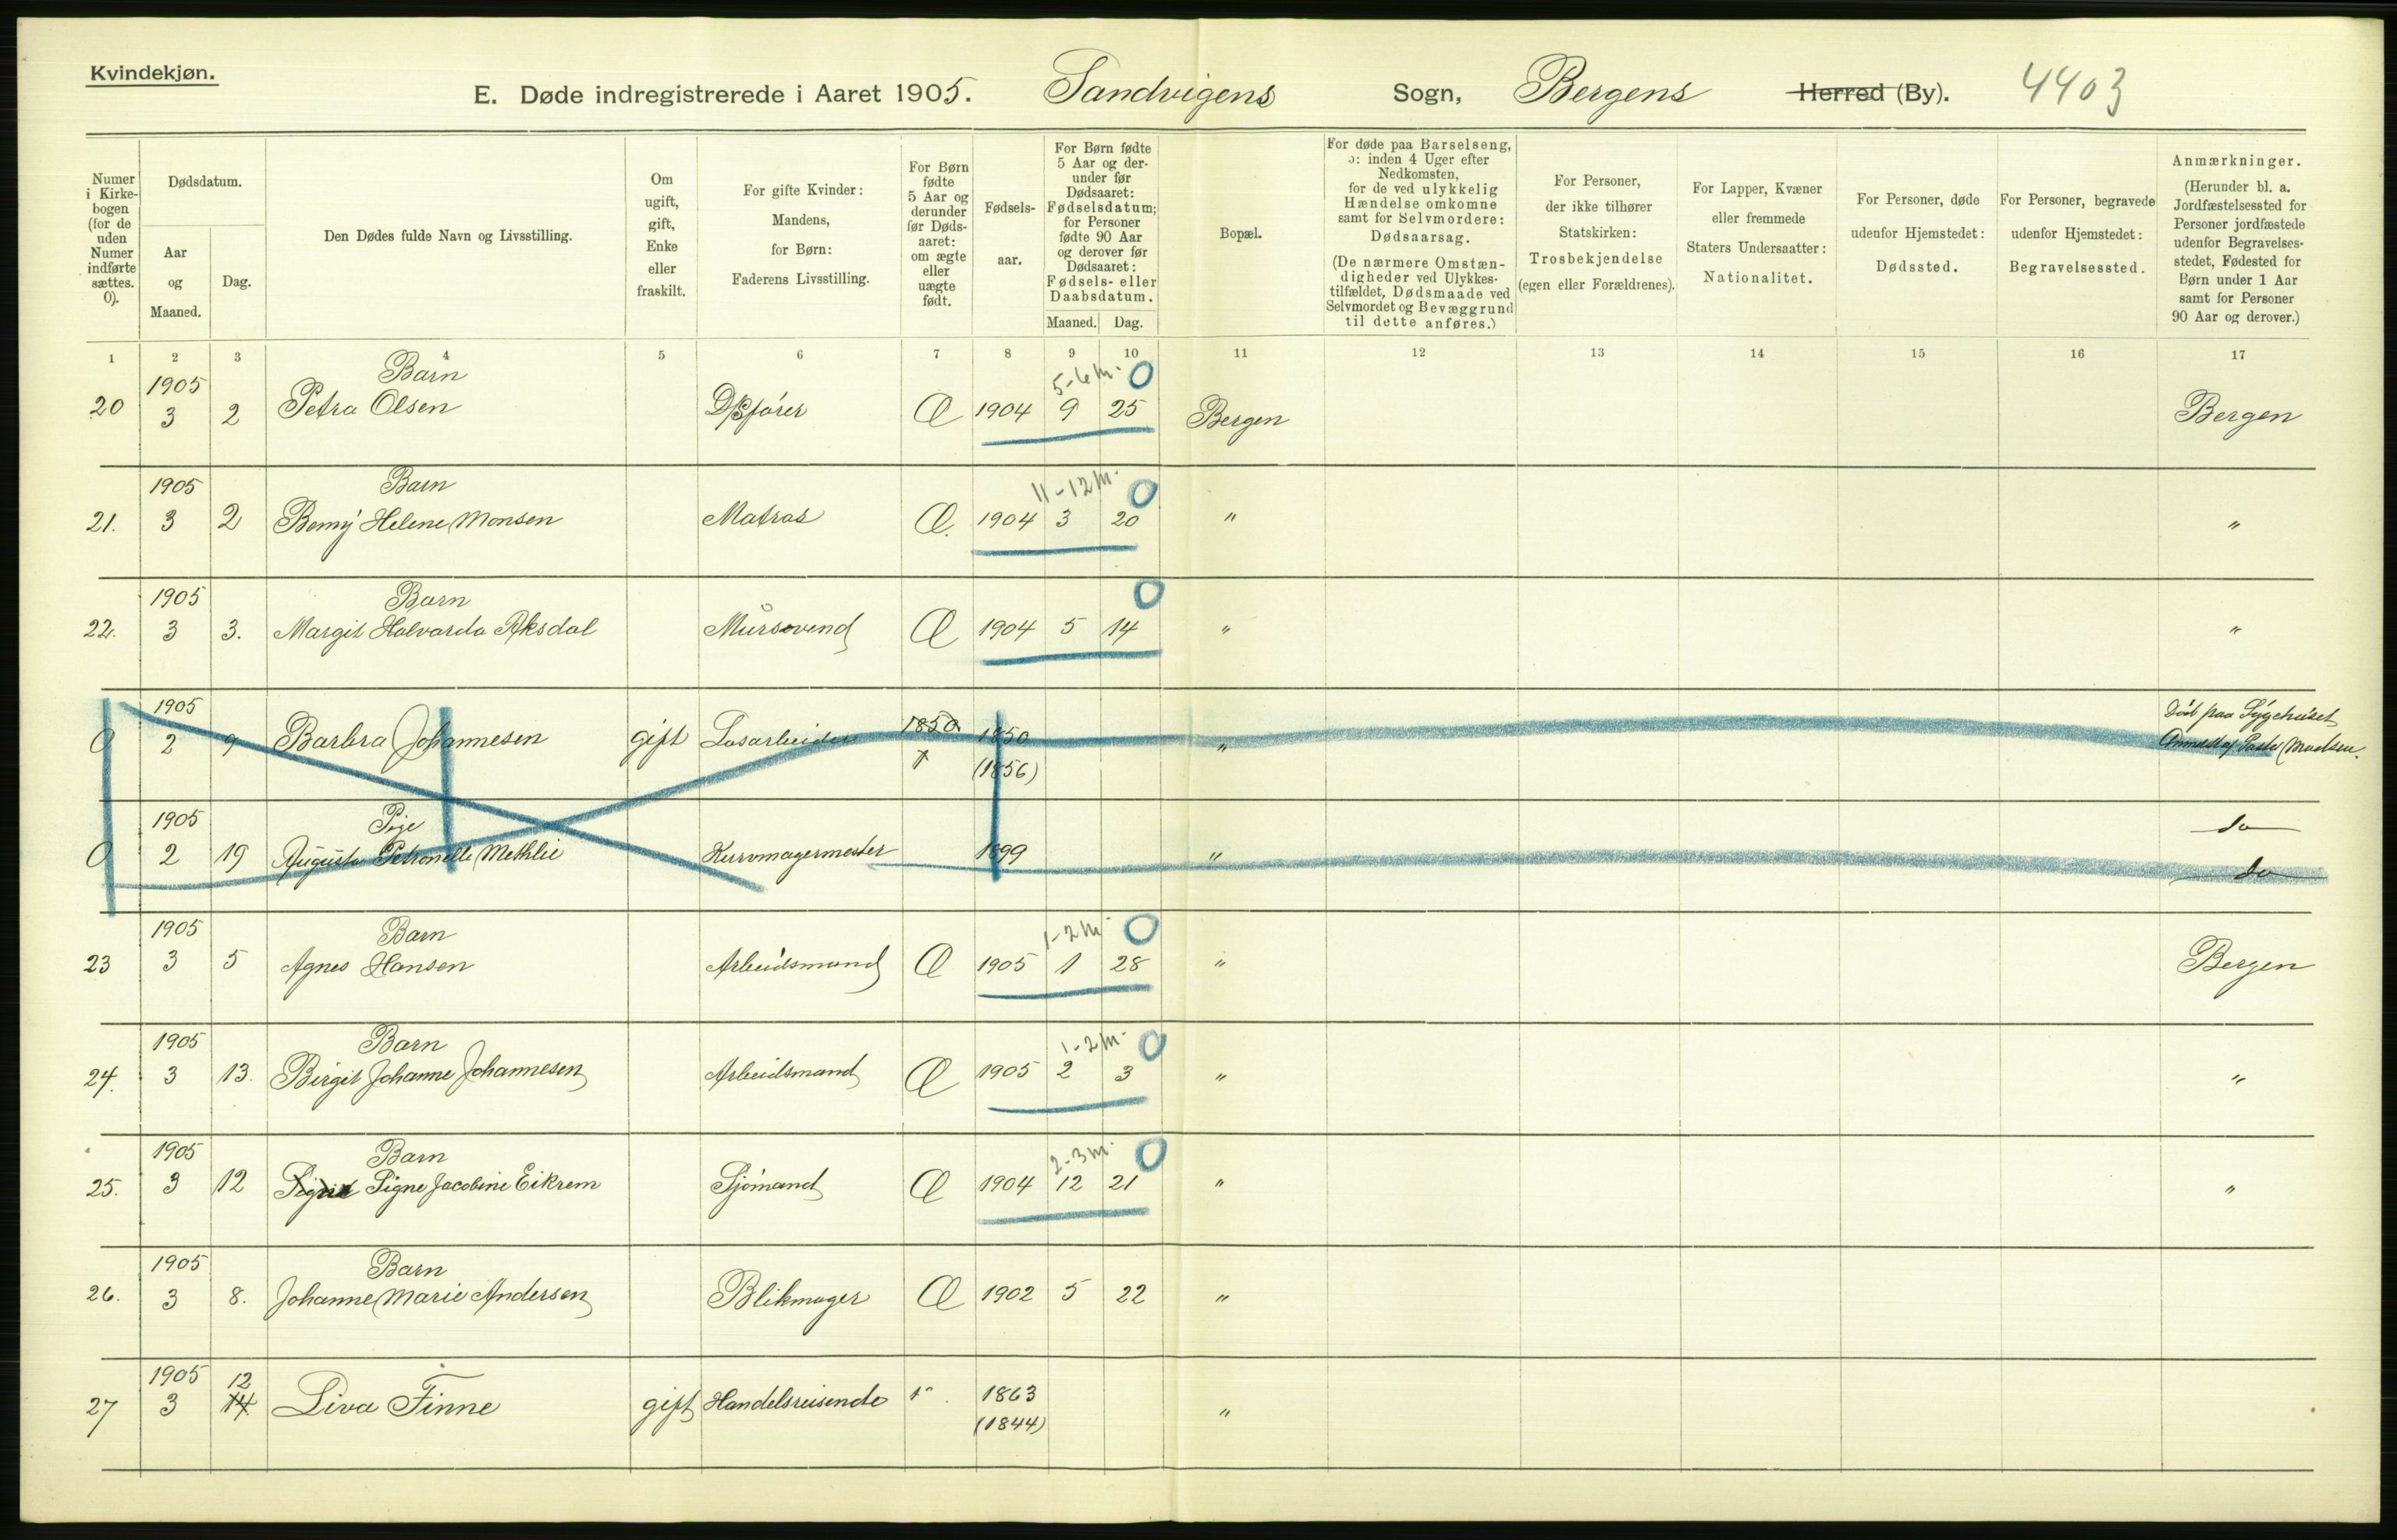 Kvindekjøn.
E. Døde indregistrerede i Aaret 1905. Sandvigens Sogn, Bergens Herred (By). 4403
Numer i Kirkebogen (for de uden Numer indførte sættes. 0).
Dødsdatum.
Aar og Maaned.
Dag.
Den Dødes fulde Navn og Livsstilling.
Om ugift, gift, Enke eller fraskilt.
For gifte Kvinder: Mandens, for Børn: Faderens Livsstilling.
For Børn fødte 5 Aar og derunder før Dødsaaret: om ægte eller uægte født.
Fødselsaar.
For Børn fødte 5 Aar og derunder før Dødsaaret: Fødselsdatum; for Personer fødte 90 Aar og derover før Dødsaaret: Fødsels- eller Daabsdatum.
Maaned. Dag.
Bopæl.
For døde paa Barselseng, ɔ: inden 4 Uger efter Nedkomsten, for de ved ulykkelig Hændelse omkomne samt for Selvmordere: Dødsaarsag.
(De nærmere Omstændigheder ved Ulykkestilfældet, Dødsmaade ved Selvmordet og Bevæggrund til dette anføres.)
For Personer, der ikke tilhører Statskirken: Trosbekjendelse (egen eller Forældrenes).
For Lapper, Kvæner eller fremmede Staters Undersaatter: Nationalitet.
For Personer, døde udenfor Hjemstedet: Dødssted.
For Personer, begravede udenfor Hjemstedet: Begravelsessted.
Anmærkninger.
(Herunder bl. a. Jordfæstelsessted for Personer jordfæstede udenfor Begravelsesstedet, Fødested for Børn under 1 Aar samt for Personer 90 Aar og derover.)
1 2 3 4 5 6 7 8 9 10 11 12 13 14 15 16 17
1905 Barn 5-6 m. 0
20 3 2 Petra Olsen D/Sfører Æ 1904 9 25 Bergen Bergen
1905 Barn 11-12 m. 0
21. 3 2 Benny Helene Monsen Matros Æ. 1904 3 20 " "
1905 Barn 0
22. 3 3. Margit Halvarda Aksdal Mursvend Æ 1904 5 14 " "
1905 1850 Død paa Sygehuset
0 2 9 Barbra Johannesen gift Løsarbeider 1850 " Anmeldt af Pastor
(1856)
1905 Pige do
0 2 19 Augusta Petronelle Methlie Kurvmagermester 1899 " do
1905 Barn 1-2 m 0
23 3 5 Agnes Hansen Arbeidsmand Æ 1905 1 28 " Bergen
1905 Barn 1-2 m. 0
24. 3 13. Birgit Johanne Johannesen Arbeidsmand Æ 1905 2 3 " "
1905 Barn 2-3 m. 0
25. 3 12 Sigrid Signe Jacobine Eikrem Sjømand Æ 1904 12 21 " "
1905 Barn
26. 3 8. Johanne Marie Andersen Blikmager Æ 1902 5 22 "
1905 12
27 3 14 Liva Finne gift Handelsreisende 1863 "
(1844)